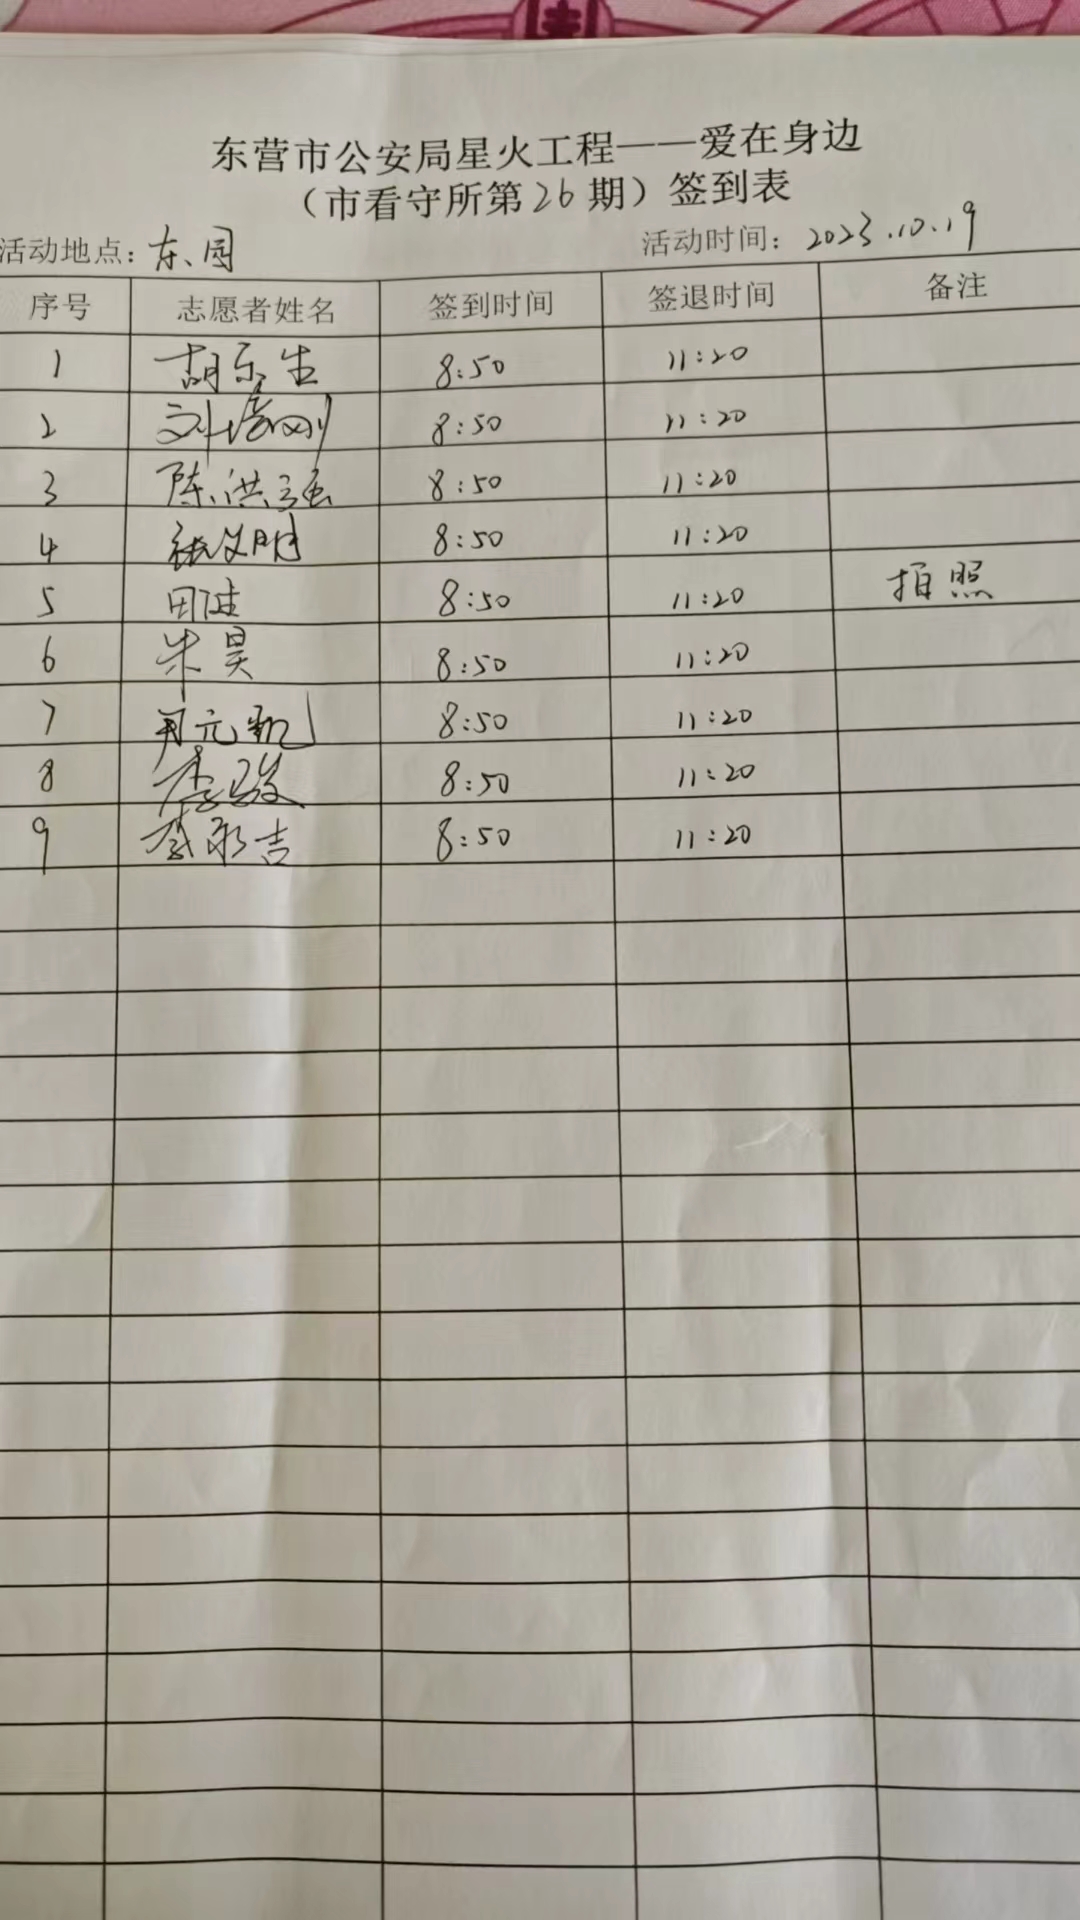 东营市公安局星火工程——爱在身边
（市看守所第26期）签到表
活动地点：东、园 活动时间：2023.10.19
序号 志愿者姓名 签到时间 签退时间 备注
1 胡乐生 8:50 11:20
2 刘培刚 8:50 11:20
3 陈洪强 8:50 11:20
4 张文明 8:50 11:20
5 田 8:50 11:20 拍照
6 朱昊 8:50 11:20
7 元凯 8:50 11:20
8 李骏 8:50 11:20
9 李永吉 8:50 11:20